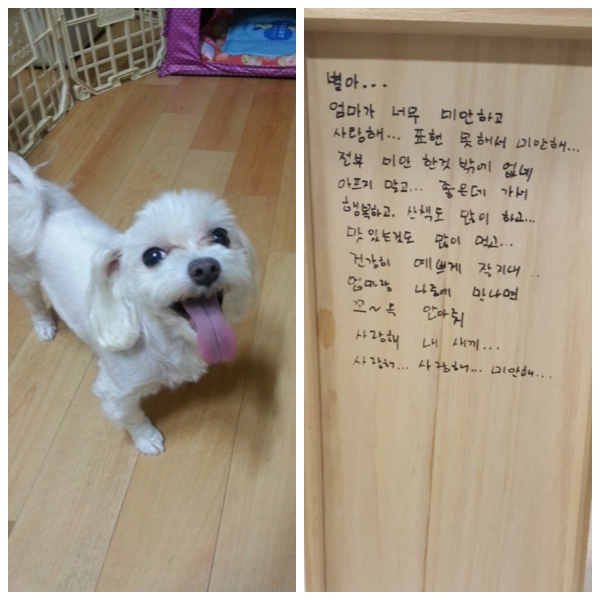 별아...
엄마가 너무 미안하고
사랑해... 표현 못해서 미안해...
전부 미안 한것 밖에 없네
아프지 말고... 좋은데 가서
행복하고. 산책도 많이 하고...
맛있는것도 많이 먹고...
건강히 예쁘게 잘지내..
엄마랑 나중에 만나면
꼬~옥 안아줘
사랑해 내 새끼...
사랑해... 사랑해... 미안해...